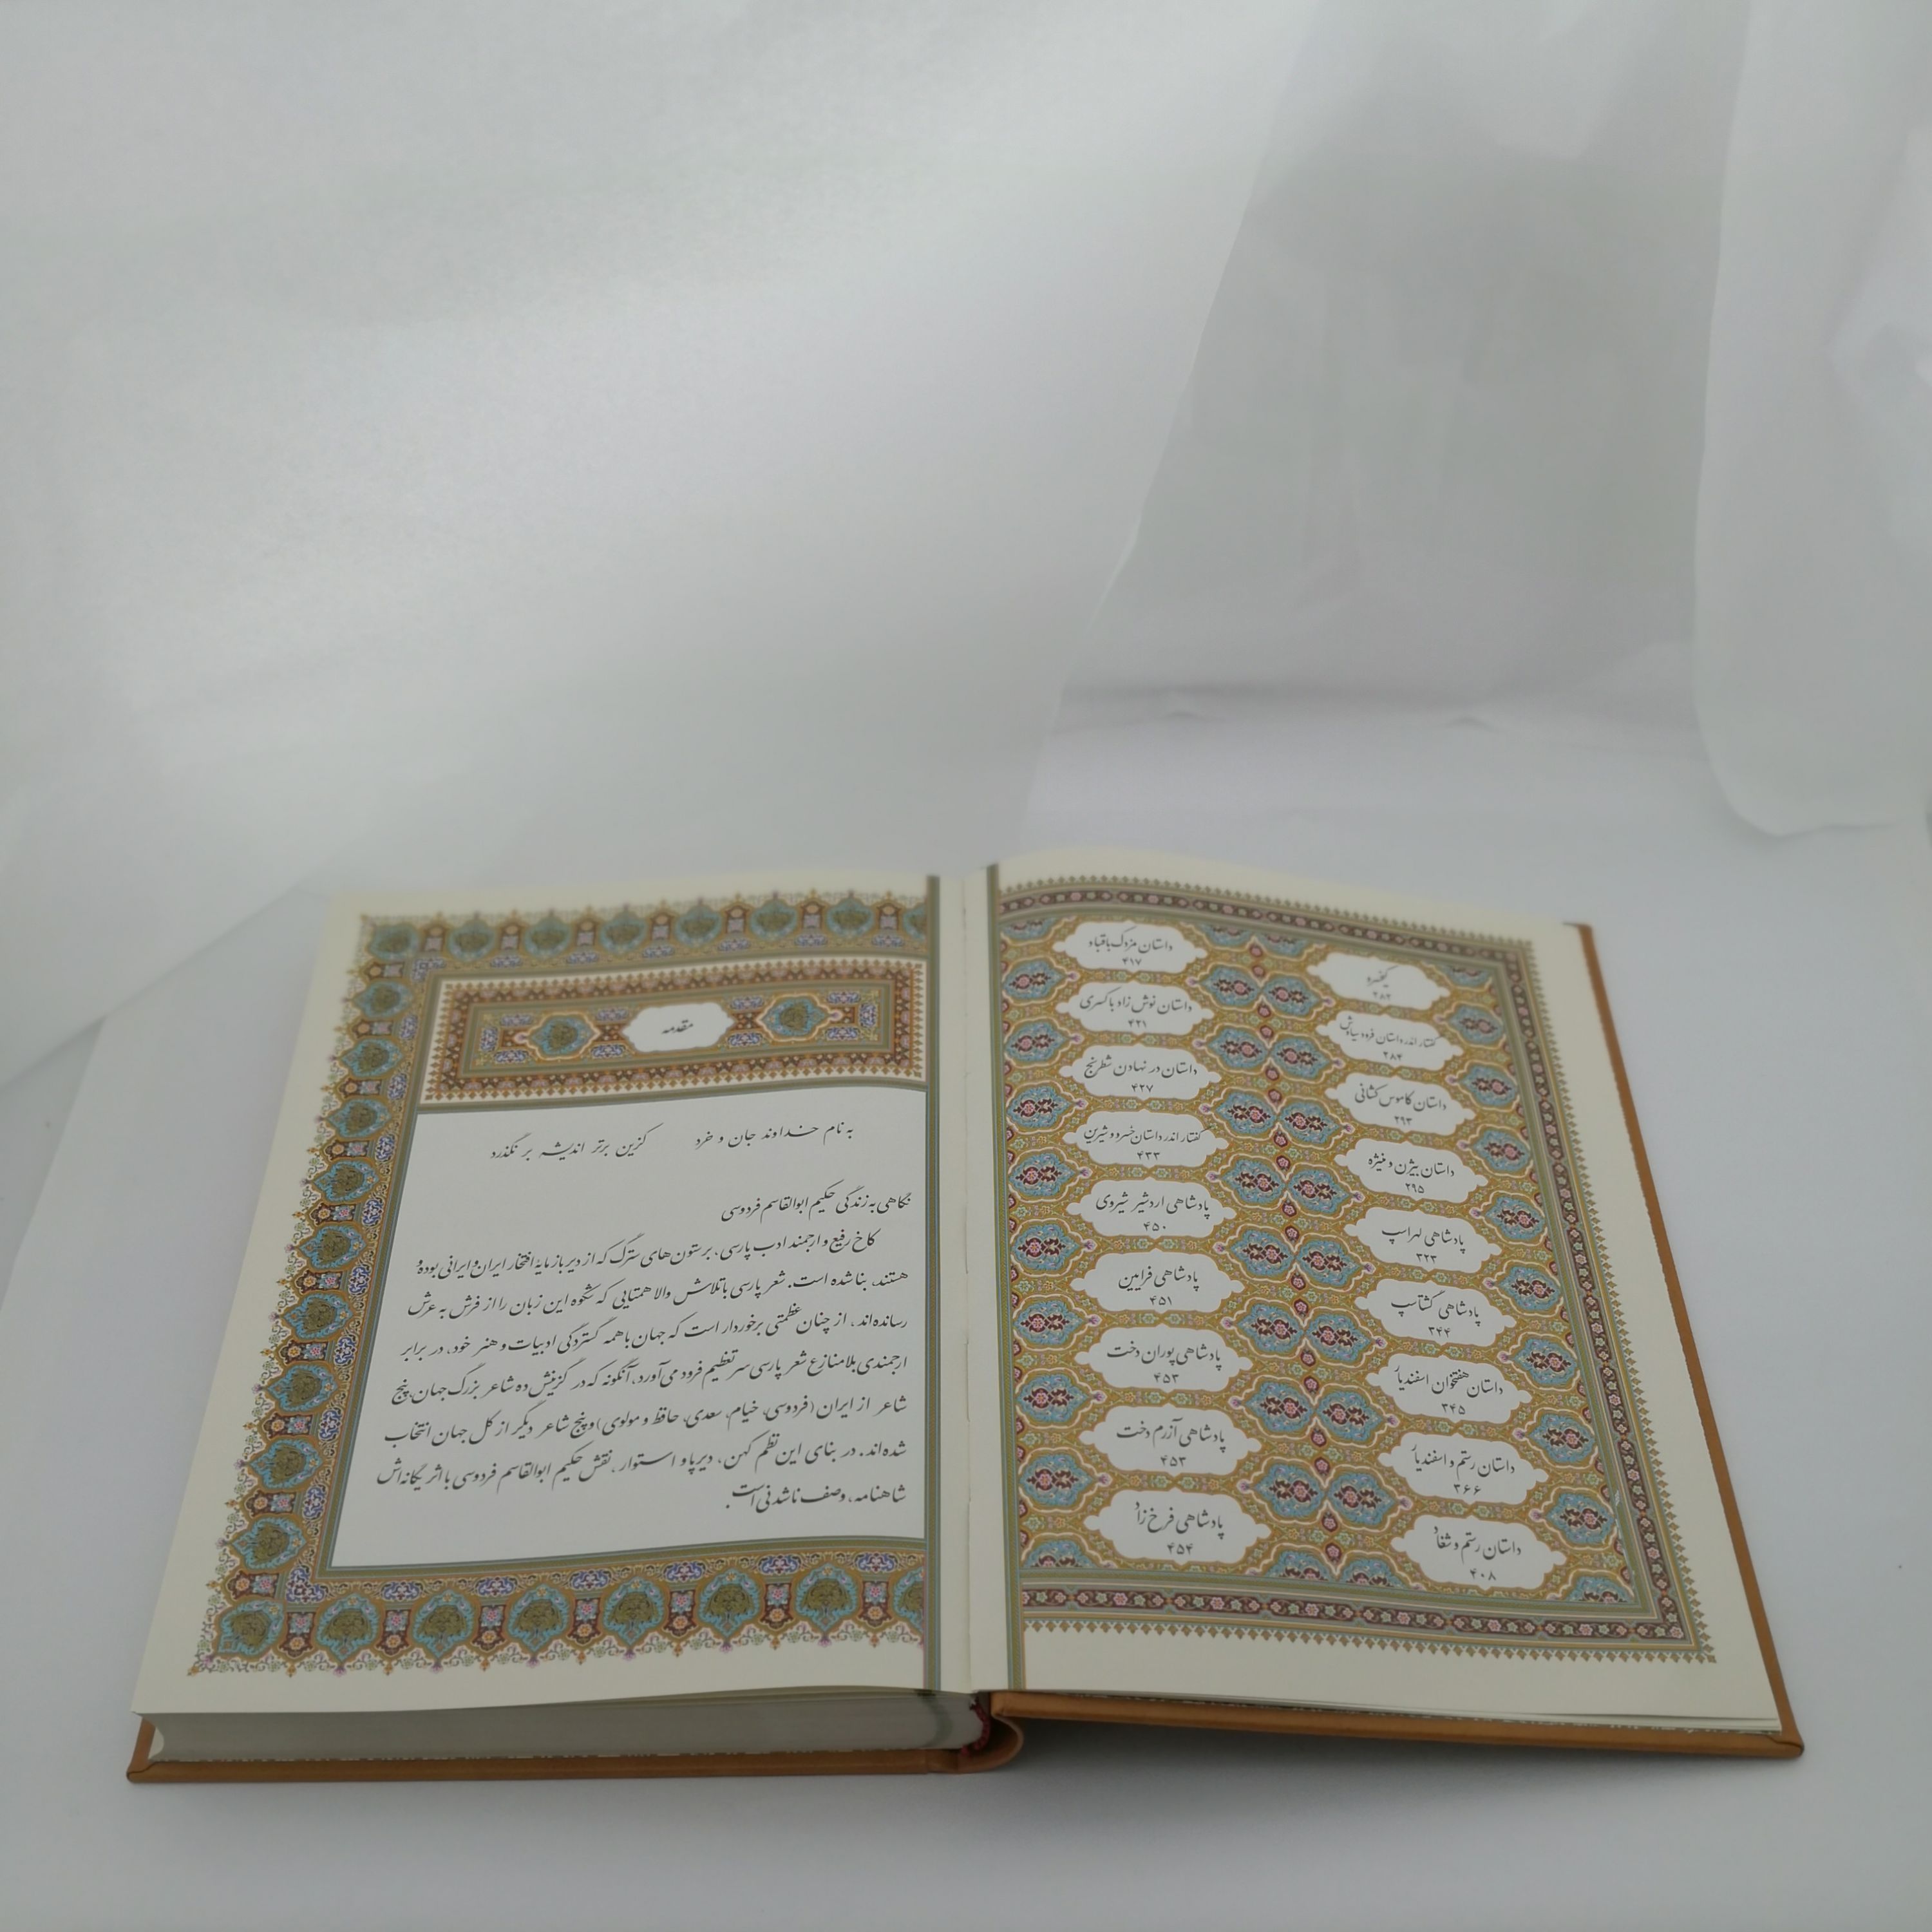 کیخسرو
۲۸۲
گفتار اندر داستان فرود سیاوش
۲۸۴
داستان کاموس کشانی
۲۹۳
داستان بیژن و منیژه
۲۹۵
پادشاهی لهراسپ
۳۲۳
پادشاهی گشتاسپ
۳۴۴
داستان هفتخوان اسفندیار
۳۴۵
داستان رستم و اسفندیار
۳۶۶
داستان رستم و شغاد
۴۰۸
داستان مزدک با قباد
۴۱۷
داستان نوش زاد با کسری
۴۲۱
داستان در نهادن شطرنج
۴۲۷
گفتار اندر داستان خسرو و شیرین
۴۳۳
پادشاهی اردشیر شیروی
۴۵۰
پادشاهی فرایین
۴۵۱
پادشاهی پوران دخت
۴۵۳
پادشاهی آزرم دخت
۴۵۳
پادشاهی فرخ زاد
۴۵۴
مقدمه
به نام خداوند جان و خرد کزین برتر اندیشه بر نگذرد
نگاهی به زندگی حکیم ابوالقاسم فردوسی
کاخ رفیع و ارجمند ادب پارسی، بر ستون های سترگ که از دیرباز مایهٔ افتخار ایران و ایرانی بوده و
هستند، بنا شده است. شعر پارسی با تلاش والا همتایی که شکوه این زبان را از فرش به عرش
رسانده اند، از چنان عظمتی برخوردار است که جهان با همه گستردگی ادبیات و هنر خود، در برابر
ارجمندی بلامنازع شعر پارسی سر تعظیم فرود می آورد، آنگونه که در گزینش ده شاعر بزرگ جهان پنج
شاعر از ایران (فردوسی، خیام، سعدی، حافظ و مولوی) و پنج شاعر دیگر از کل جهان انتخاب
شده اند. در بنای این نظم کهن، دیرپا و استوار، نقش حکیم ابوالقاسم فردوسی با اثر یگانه اش
شاهنامه، وصف ناشدنی است.